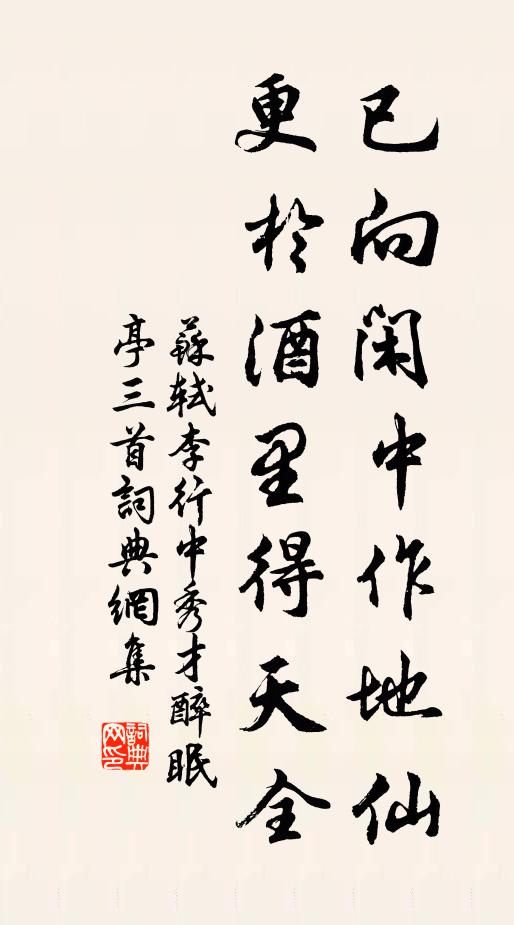 已向闲中作地仙
更於酒里得天全
蘇軾李行中秀才醉眠
亭三首詞典網集
詞典
网印